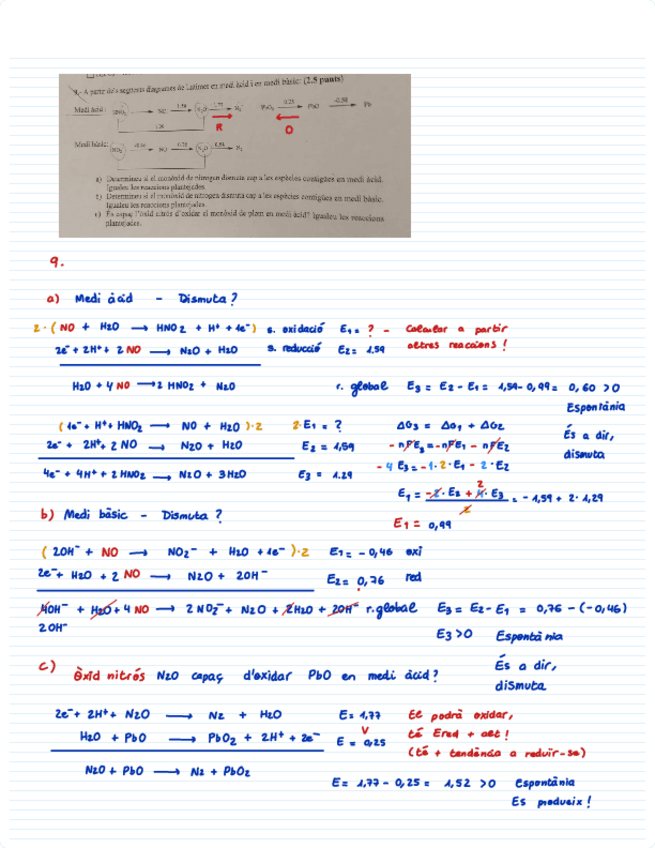 9.- A partir dels següents diagrames de Latimer en medi àcid i en medi bàsic: (2.5 punts)
Medi àcid: HNO₂ → NO 1.59 → N₂O 1.77 → N₂ PbO₂ 0.25 → PbO -0.58 → Pb
R O
1.29
Medi bàsic: NO₂⁻ -0.46 → NO 0.76 → N₂O → N₂
a) Determineu si el monòxid de nitrogen dismuta cap a les espècies contigües en medi àcid.
Igualeu les reaccions plantejades.
b) Determineu si el monòxid de nitrogen dismuta cap a les espècies contigües en medi bàsic.
Igualeu les reaccions plantejades.
c) És capaç l'òxid nitrós d'oxidar el monòxid de plom en medi àcid? Igualeu les reaccions
plantejades.
9.
a) Medi àcid - Dismuta?
2·( NO + H2O → HNO2 + H⁺ + 1e⁻) s. oxidació E1 = ? - Calcular a partir
2e⁻ + 2H⁺ + 2 NO → N2O + H2O s. reducció E2 = 1,59 altres reaccions!
H2O + 4 NO → 2 HNO2 + N2O r. global E3 = E2 - E1 = 1,59 - 0,99 = 0,60 >0
Espontània
(1e⁻ + H⁺ + HNO2 → NO + H2O)·2 2·E1 = ? ΔG3 = ΔG1 + ΔG2 És a dir,
2e⁻ + 2H⁺ + 2 NO → N2O + H2O E2 = 1,59 -nFE3 = -nFE1 - nFE2 dismuta
4e⁻ + 4H⁺ + 2 HNO2 → N2O + 3H2O E3 = 1.29 -4 E3 = -1·2·E1 - 2·E2
E1 = -2·E2 + 4·E3 / 2 = -1,59 + 2·1,29
2
E1 = 0,99
b) Medi bàsic - Dismuta?
(2OH⁻ + NO → NO2⁻ + H2O + 1e⁻)·2 E1 = -0,46 oxi
2e⁻ + H2O + 2 NO → N2O + 2OH⁻ E2 = 0,76 red
4OH⁻ + H2O + 4 NO → 2 NO2⁻ + N2O + 2H2O + 2OH⁻ r.global E3 = E2 - E1 = 0,76 - (-0,46)
2OH⁻
E3 >0 Espontània
És a dir,
dismuta
c) Òxid nitrós N2O capaç d'oxidar PbO en medi àcid?
2e⁻ + 2H⁺ + N2O → N2 + H2O E = 1,77 El podrà oxidar,
V té Ered + alt!
H2O + PbO → PbO2 + 2H⁺ + 2e⁻ E = 0,25 (té + tendència a reduir-se)
N2O + PbO → N2 + PbO2
E = 1,77 - 0,25 = 1,52 >0 Espontània
Es produeix!